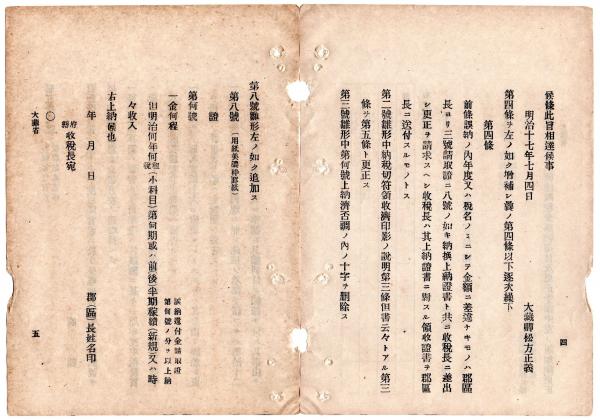 候條此旨相達候事
明治十七年七月四日
大藏卿松方正義
第四條ヲ左ノ如ク增補シ舊ノ第四條以下逐次繰下
第四條
前條誤納ノ內年度又ハ稅名ノミニシテ金額ニ差違ナキモノハ郡區
長ヨリ三號請取證ニ八號ノ如キ納換上納證書ト共ニ收稅長ニ差出
シ更正ヲ請求スヘシ收稅長ハ其上納證書ニ對スル領收證書ヲ郡區
長ニ送付スルモノトス
第二號雛形中納稅切符領收濟印影ノ說明第三條但書云々トアル第三
條ヲ第五條ト更正ス
第三號雛形中第何號上納濟否調ノ內ノ十字ヲ刪除ス
四
第八號雛形左ノ如ク追加ス
第八號（用紙美濃枠罫紙）
第何號
誤納還付金請取證
第何號ノ分ヲ以上納
一金何程
但明治何年何稅（小科目）第何期或ハ前後半期稼續（新規）又ハ時
々收入
右上納候也
年 月 日
郡（區）長姓名印
府縣 收稅長宛
〇
大藏省
五